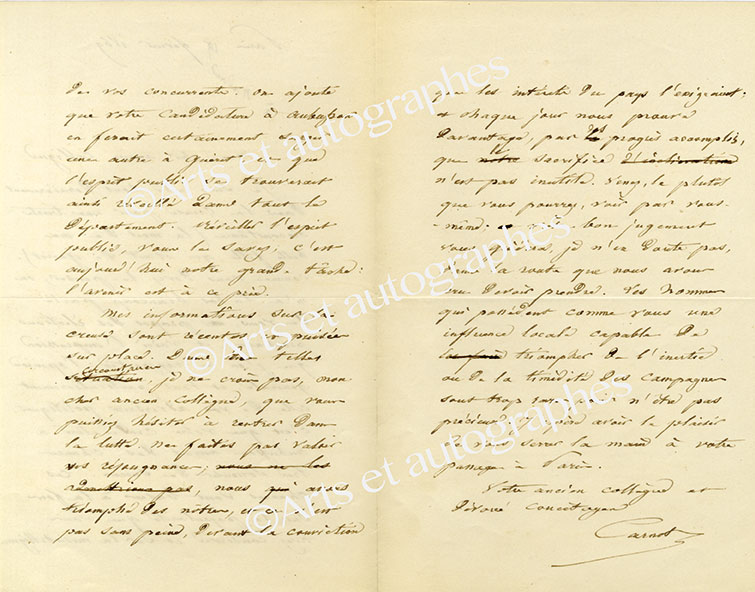 de vos concurrents. On ajoute
que votre candidature à Aubusson
en ferait certainement surgir
une autre à Guéret et que
l'esprit public se trouverait
ainsi réveillé dans tout le
Département. Réveiller l'esprit
public, vous le savez, c'est
aujourd'hui notre grande tâche:
l'avenir est à ce prix.
Mes informations sur la
Creuse sont récentes et puisées
sur place. Dans de telles
situation circonstances, je ne crois pas, mon
cher ancien collègue, que vous
puissiez hésiter à rentrer dans
la lutte. Ne faites pas valoir
vos répugnances; nous ne les
admettrions pas, nous qui avons
triomphé des nôtres, et ce n'est
pas sans peine, devant la conviction
que les intérêts du pays l'exigeaient:
et chaque jour nous prouve
davantage, par les progrès accomplis,
que notre le sacrifice d'inclination
n'est pas inutile. Venez, le plutôt
que vous pourrez, voir par vous-
-même: votre bon jugement
vous guidera, je n'en doute pas,
dans la route que nous avons
cru devoir prendre. Les hommes
qui possèdent comme vous une
influence locale capable de
triompher de l'inertie
ou de la timidité des campagnes
sont trop rares pour n'être pas
précieux. J'espère avoir le plaisir
de vous serrer la main à votre
passage à Paris.
Votre ancien collègue et
dévoué concitoyen
Carnot
©Arts et autographes
©Arts et autographes
©Arts et autographes
©Arts et autographes